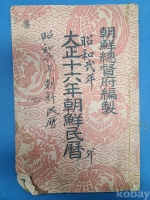 朝鮮總督府編製
昭和貳年
大正十六年朝鮮民曆
年
昭和二年朝鮮民曆
kobay